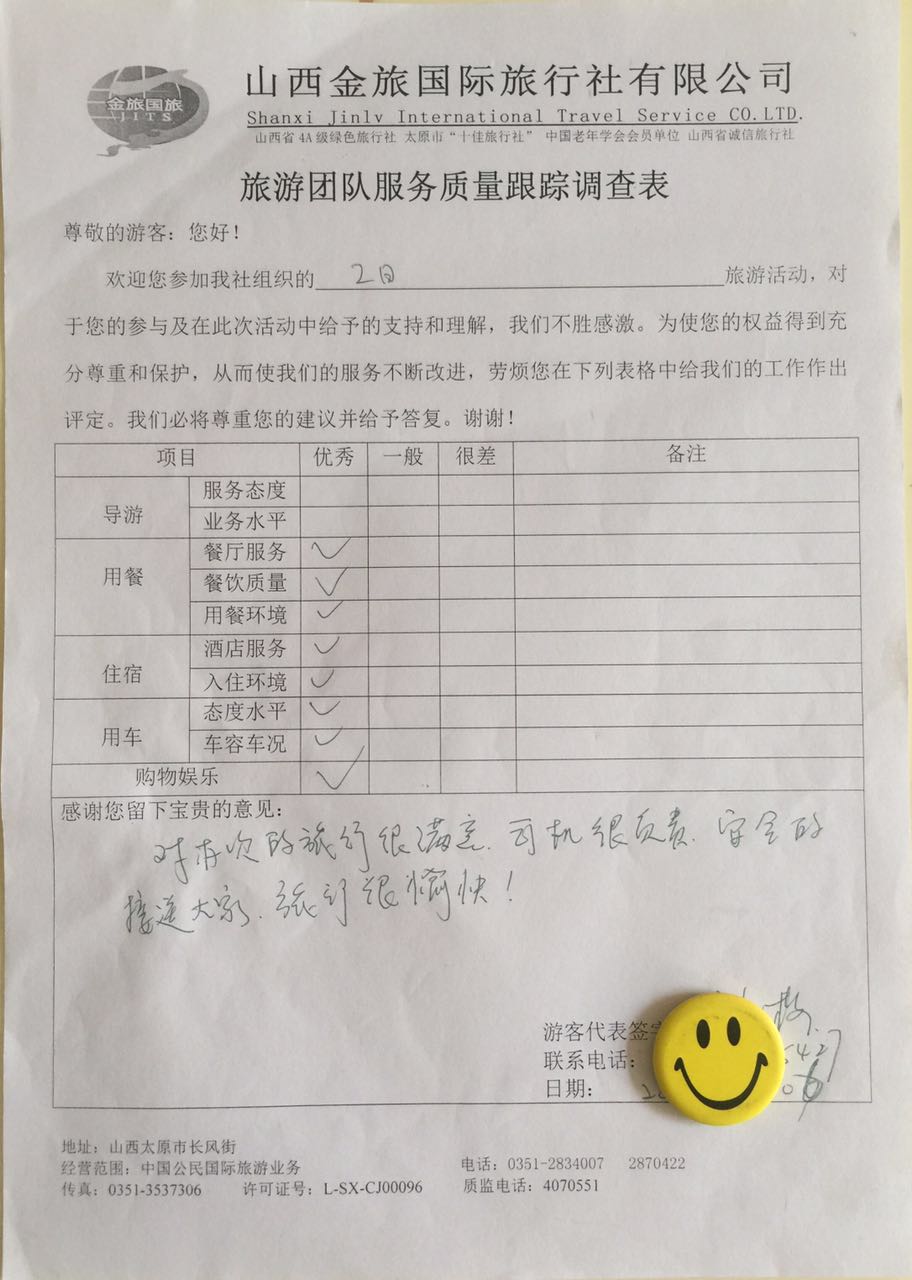 金旅国旅
JITS
山西金旅国际旅行社有限公司
Shanxi Jinlv International Travel Service CO.LTD.
山西省4A级绿色旅行社 太原市“十佳旅行社” 中国老年学会会员单位 山西省诚信旅行社
旅游团队服务质量跟踪调查表
尊敬的游客：您好！
欢迎您参加我社组织的 2日 旅游活动，对
于您的参与及在此次活动中给予的支持和理解，我们不胜感激。为使您的权益得到充
分尊重和保护，从而使我们的服务不断改进，劳烦您在下列表格中给我们的工作作出
评定。我们必将尊重您的建议并给予答复。谢谢！
项目 优秀 一般 很差 备注
导游 服务态度
业务水平
用餐 餐厅服务 ✓
餐饮质量 ✓
用餐环境 ✓
住宿 酒店服务 ✓
入住环境 ✓
用车 态度水平 ✓
车容车况 ✓
购物娱乐 ✓
感谢您留下宝贵的意见：
对本次的旅行很满意、司机很负责、安全的
接送大家、旅行很愉快！
游客代表签字
联系电话：
日期：
地址：山西太原市长风街
经营范围：中国公民国际旅游业务 电话：0351-2834007 2870422
传真：0351-3537306 许可证号：L-SX-CJ00096 质监电话：4070551